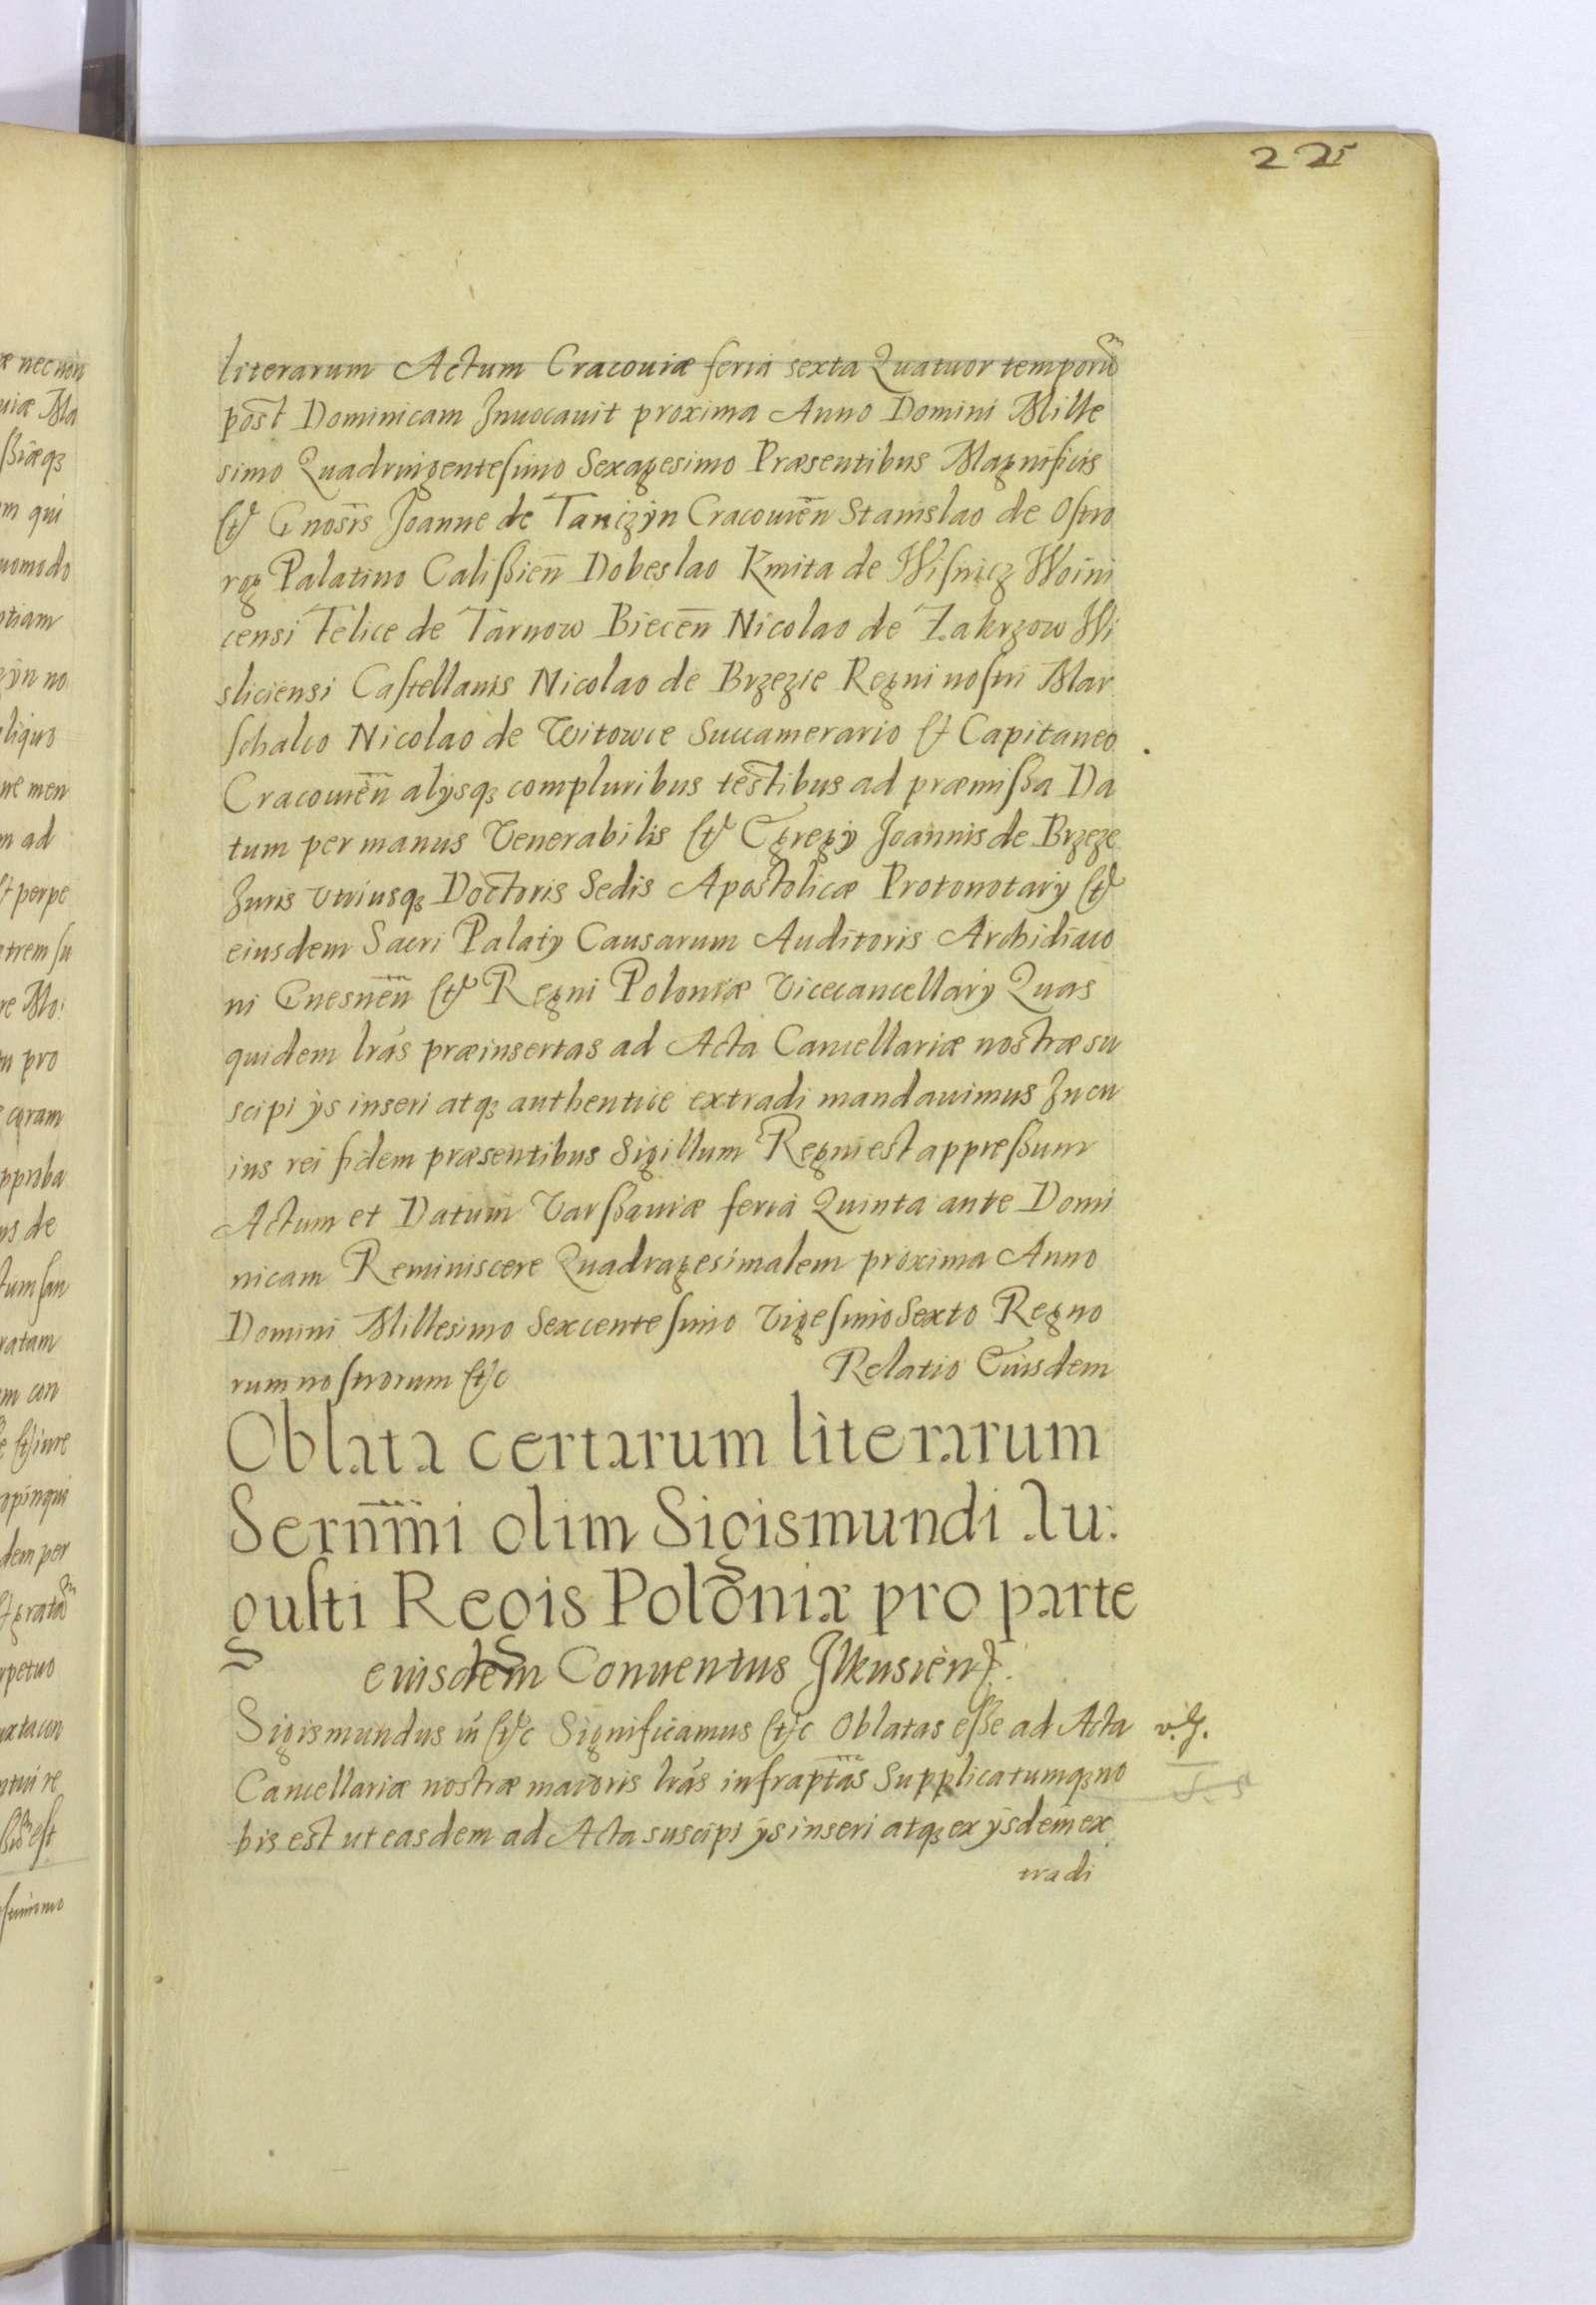 225
literarum Actum Cracouiæ feria sexta Quatuor temporū
post Dominicam Inuocauit proxima Anno Domini Mille
simo Quadringentesimo Sexagesimo Præsentibus Magnificis
et Gnosis Joanne de Tanczÿn Cracouien̄ Stanislao de Ostro
rog Palatino Calißien̄ Dobeslao Kmita de Wisnicz Woini
censi Felice de Tarnow Biecen̄ Nicolao de Zakrzow Wi
sliciensi Castellanis Nicolao de Brzezie Regni nostri Mar
schalco Nicolao de Witowice Succamerario et Capitaneo
Cracouien̄ alÿsq₃ compluribus testibus ad præmißa Da
tum per manus Venerabilis et Egregÿ Joannis de Brzezie
Iuris vtriusq₃ Doctoris Sedis Apostolicæ Protonotarÿ et
eiusdem Sacri Palatÿ Causarum Auditoris Archidiaco
ni Gnesnen̄ et Regni Poloniæ Vicecancellarÿ Quas
quidem lrás præinsertas ad Acta Cancellariæ nostræ su
scipi ÿs inseri atq₃ authentice extradi mandauimus In cu
ius rei fidem præsentibus Sigillum Regni est appreßum
Actum et Datum Varßauiæ feria Quinta ante Domi
nicam Reminiscere Quadragesimalem proxima Anno
Domini Millesimo Sexcentesimo Vigesimo Sexto Regno
rum nostrorum etc Relatio Eiusdem
Oblata certarum literarum
Sern̄m̄i olim Sigismundi Au:
gusti Regis Poloniæ pro parte
eiusdem Conuentus Ilkusien̄.
Sigismundus iii etc Significamus etc Oblatas eße ad Acta
Cancellariæ nostræ maioris lrás infraptas Supplicatumq₃ no
bis est ut easdem ad Acta suscipi ÿs inseri atq₃ ex ÿsdem ex
tradi